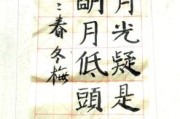 月光疑是
明月低頭
春冬梅